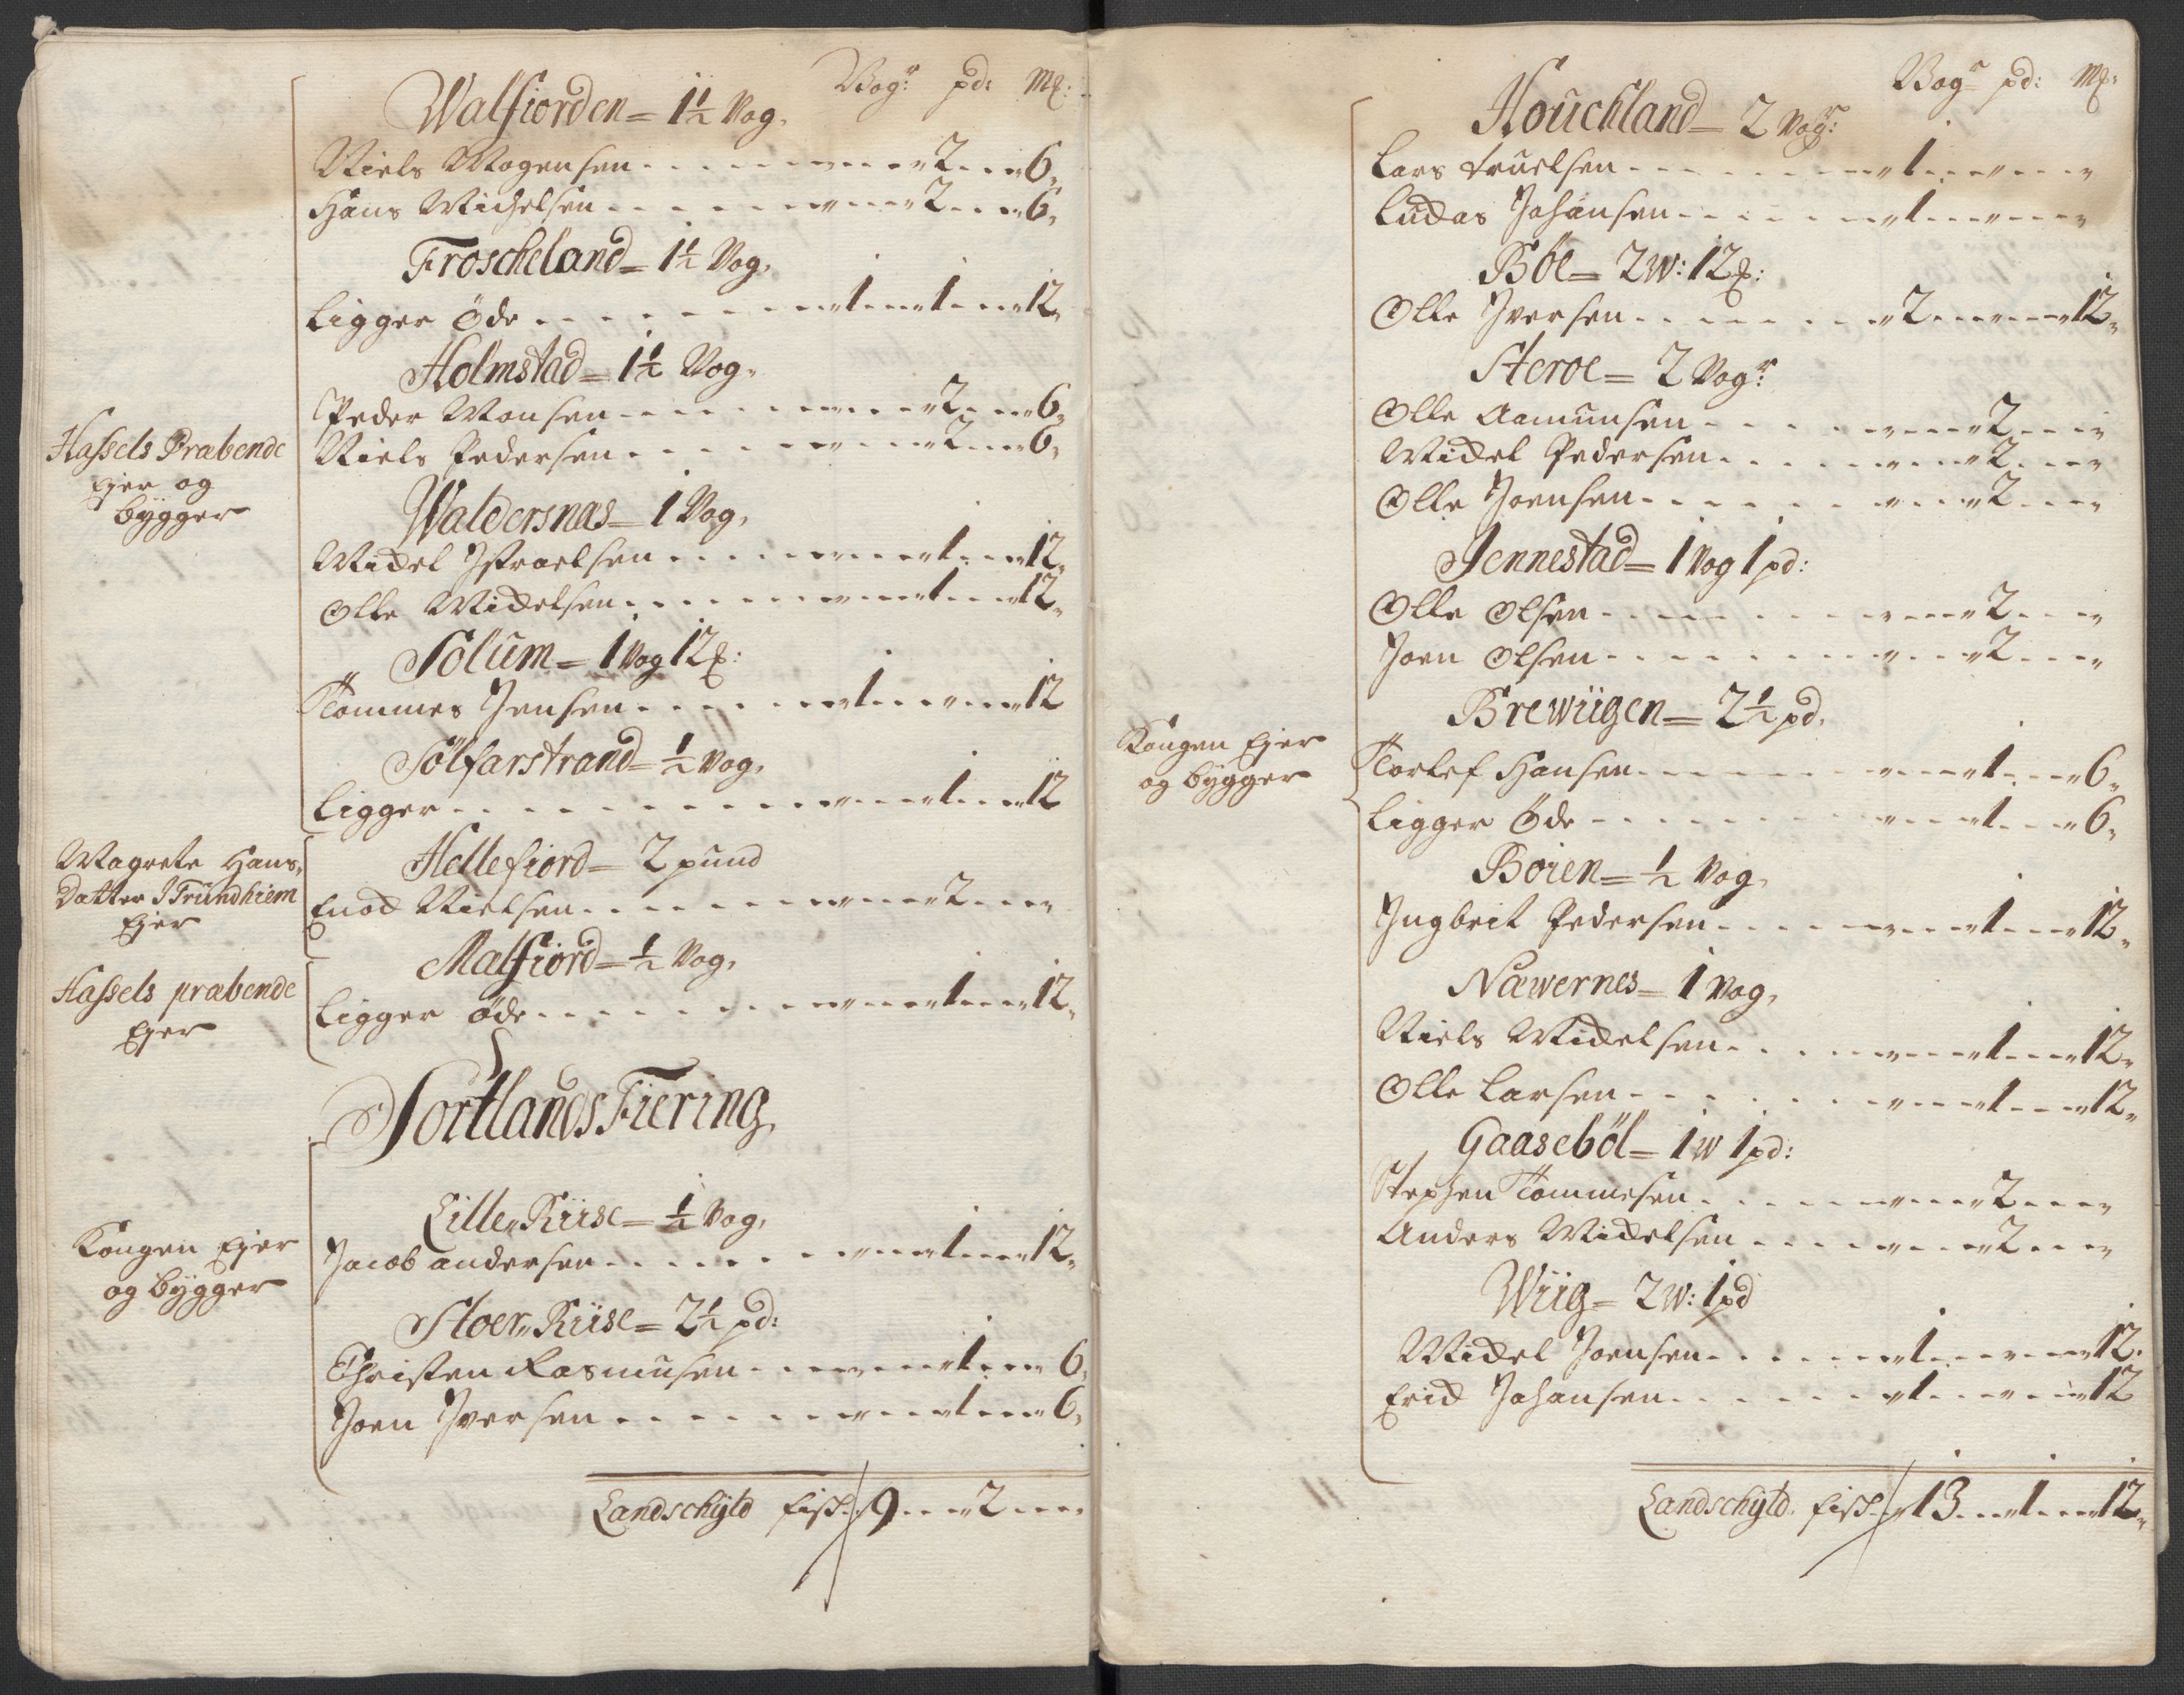 Vog.r pd: M&:
Walfiorden = 1½ Vog,
Niels Mogensen - - - - 2 - - 6,
Hans Michelsen - - - - 2 - - 6,
Froscheland = 1½ Vog,
Ligger Öde - - - - 1 - - 1 - - 12,
Holmstad = 1½ Vog,
Peder Monsen - - - - 2 - - 6,
Niels Pedersen - - - - 2 - - 6,
Hassels Præbende
Ejer og
bÿgger
Waldersnas = 1 Vog,
Michel Jsraelsen - - - - 1 - - 12,
Olle Michelsen - - - - 1 - - 12,
Solum = 1 Vog 12 &:
Tommes Jensen - - - - 1 - - - - 12
Sölfarstrand = ½ Vog,
Ligger - - - - 1 - - 12
Magrete Hans,
Datter J Trundhiem
Ejer
Hellefiord = 2 pund
Enoch Nielsen - - - - 2 - - -
Malfiord = ½ Vog,
Hassels præbende
Ejer
Ligger öde - - - - 1 - - 12,
Sortlands Fiering,
Kongen Ejer
og bÿgger
Lille Riise = ½ Vog,
Jacob andersen - - - - 1 - - 12,
Stoer Riise = 2½ pd:
Christen Rasmusen - - - - 1 - - 6,
Joen Jversen - - - - 1 - - 6,
Landschÿld fisch - 9 - - 2 - - -
Vog.r pd: M&:
Houchland = 2 Vog.r
Lars truelsen - - - - 1 - - - -
Ludas Johansen - - - - 1 - - - -
Böe = 2 W: 12 &:
Olle Jversen - - - - 2 - - - - 12,
Steroe = 2 Vog.r
Olle Aamunsen - - - - 2 - - -
Michel Pedersen - - - - 2 - - -
Olle Joensen - - - - 2 - - -
Jennestad = 1 Vog 1 pd:
Olle Olsen - - - - 2 - - -
Joen Olsen - - - - 2 - - -
Kongen Ejer
og bÿgger
Brewiigen = 2½ pd,
Torlef Hansen - - - - 1 - - 6,
Ligger Öde - - - - 1 - - 6,
Boien = ½ Vog,
Jngbrit Pedersen - - - - 1 - - 12,
Næwernes = 1 Vog,
Niels Michelsen - - - - 1 - - 12,
Olle Larsen - - - - 1 - - 12,
Gaaseböl = 1 W 1 pd:
Stephen Tommesen - - - - 2 - - -
Anders Michelsen - - - - 2 - - -
Wiig = 2 W: 1 pd
Michel Joensen - - - - 1 - - - - 12.
Erich Johansen - - - - 1 - - - - 12
Landschÿld fisch - 13 - - 1 - - 12,